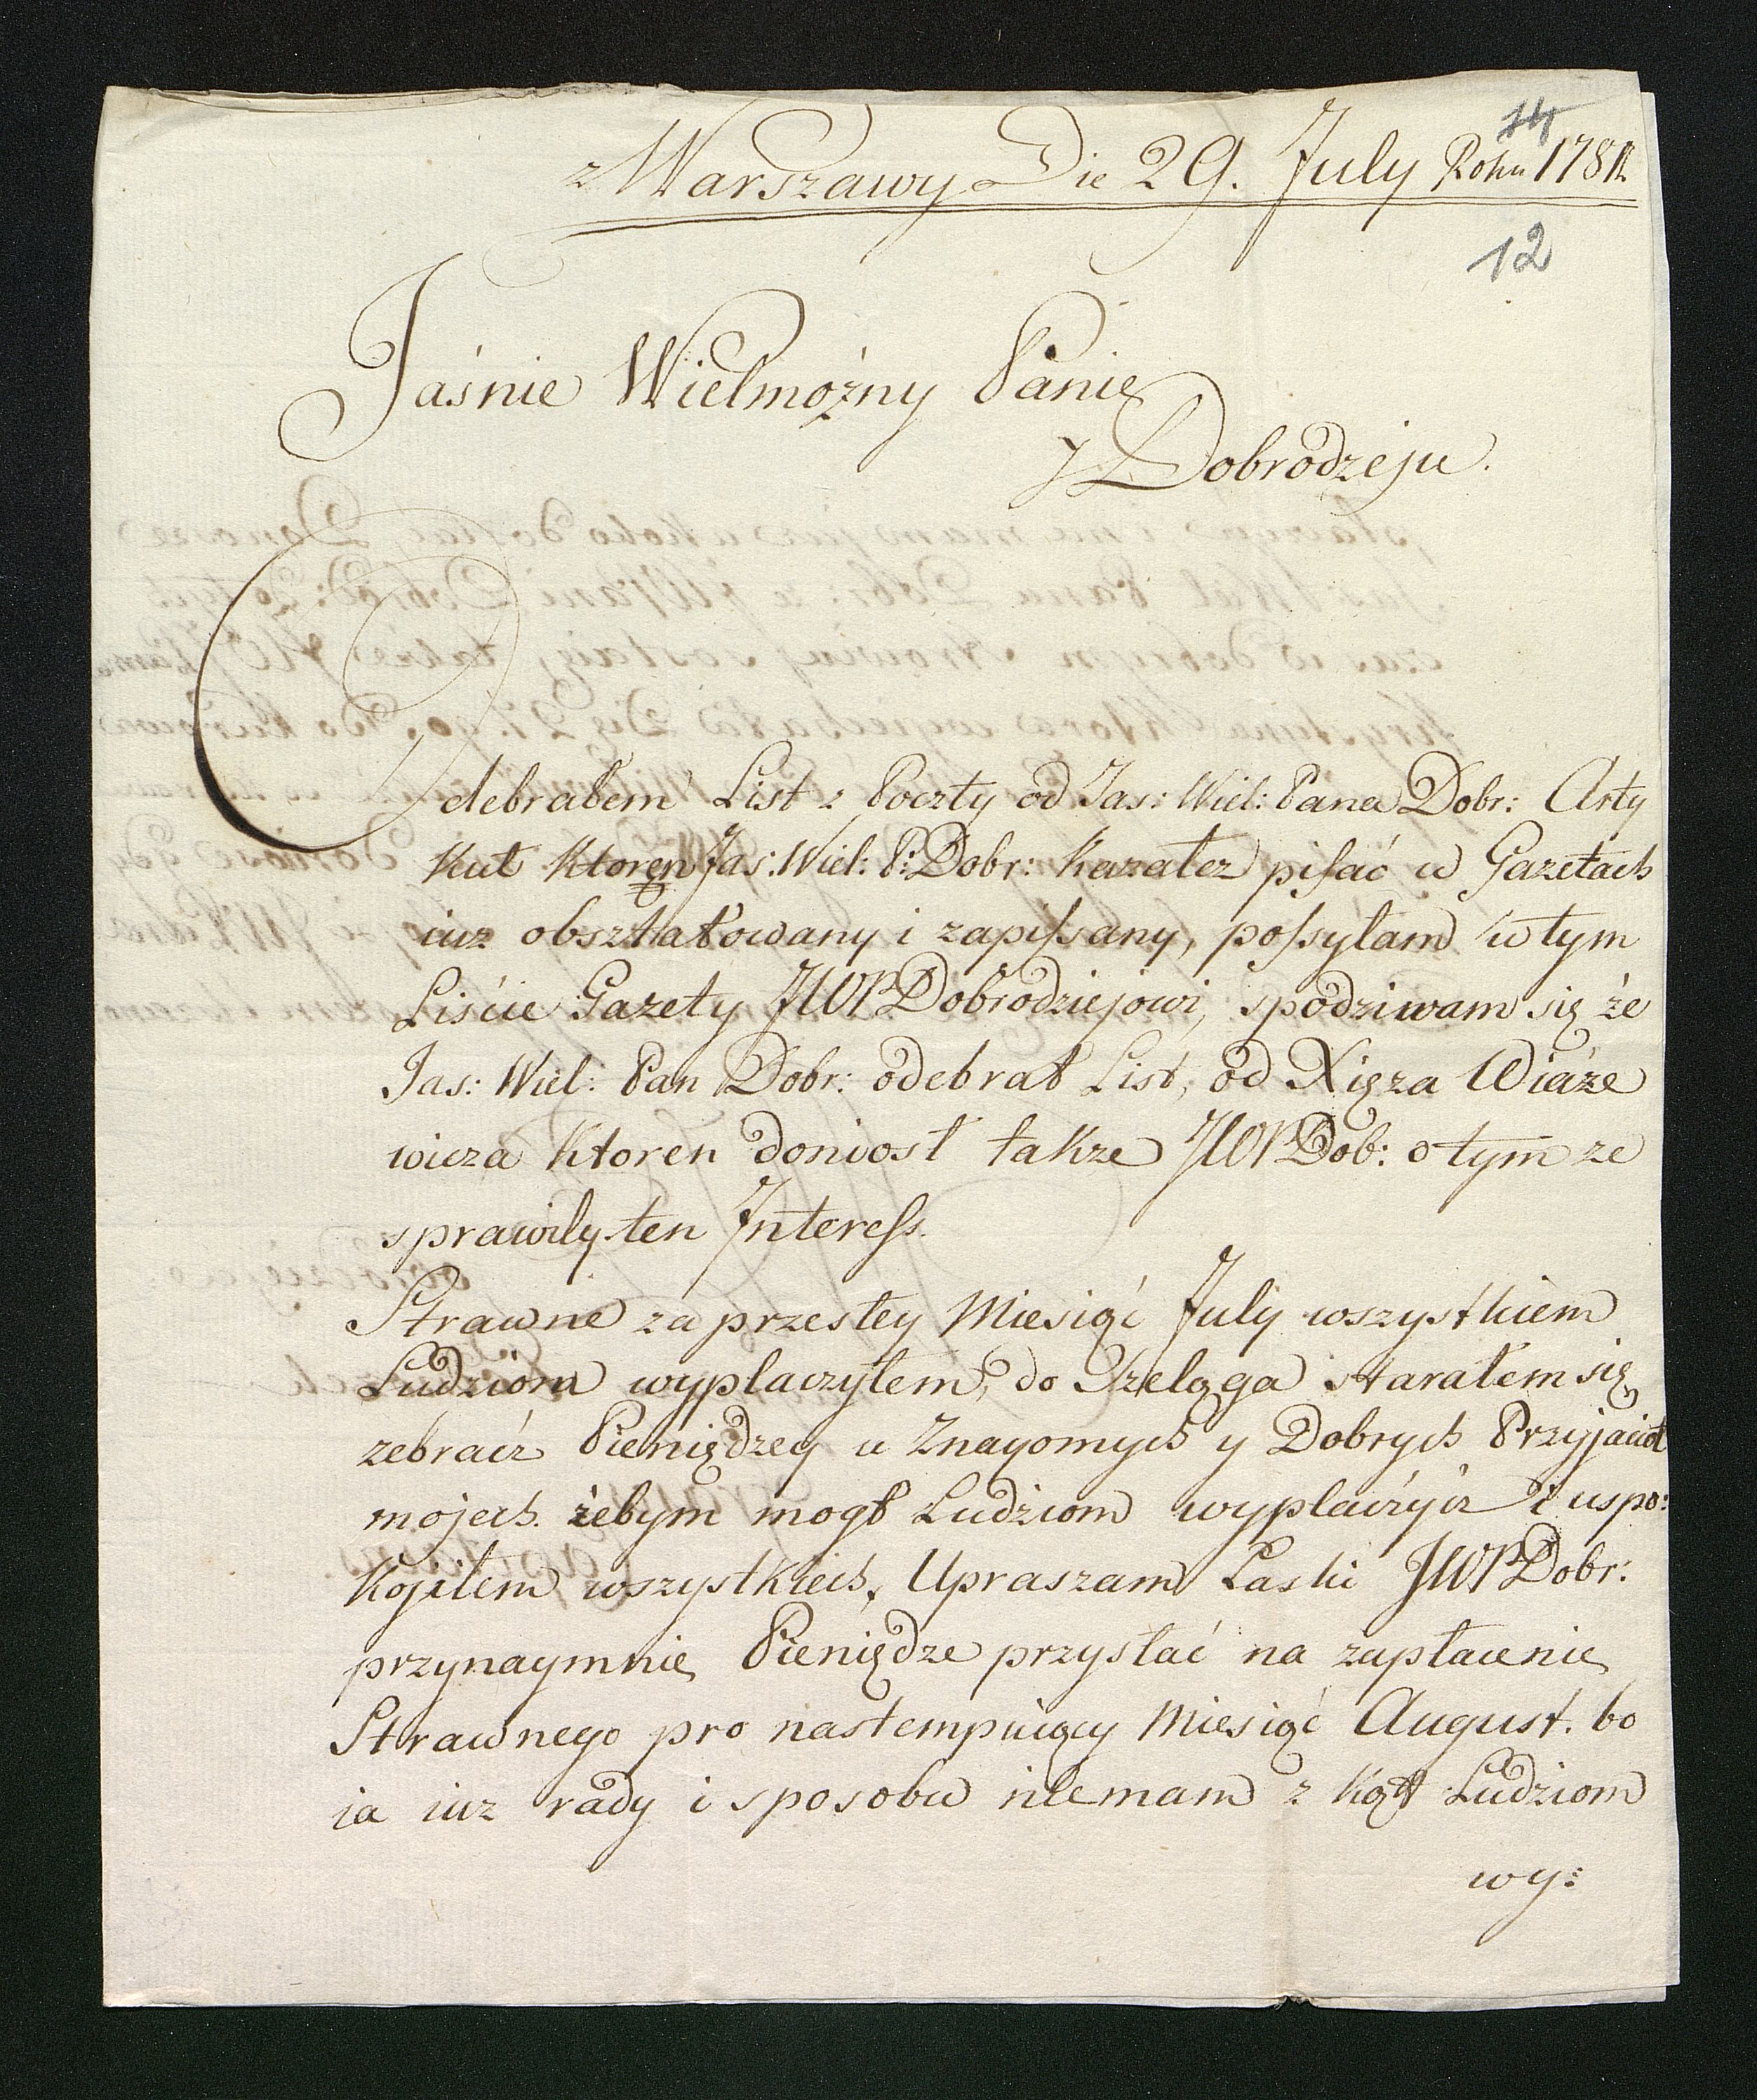 z Warszawy Die 29. July Roku 1781
12
Jaśnie Wielmożny Panie
y Dobrodzeju.
Odebrałem List z Poczty od Jas: Wiel: Pana Dobr: Arty
kuł ktoren Jas: Wiel: P: Dobr: kazałez pisać w Gazetach
iuz obsztalowany i zapissany, possyłam w tym
Liście Gazety JWP Dobrodziejowi, spodziwam się że
Jas: Wiel: Pan Dobr: odebrał List, od Xięza Wiąże
wicza ktoren doniosł takze JWP Dob: o tym ze
sprawily ten Interess.
Strawne za przesłey Miesiąć July wszystkiem
Ludziom wyplaczyłem, do Szeląga starałem się
zebraćz Pieniędzey u Znayomych y Dobrych Przyjacioł
mojech. żebym mogł Ludziom wyplaczyćz i uspo:
kojilem wszystkiech. Upraszam Laski JWP Dobr:
przynaymnie Pieniędze przysłać na zapłacenie
Strawnego pro nastempuiący Miesiąć August. bo
ia iuz rady i sposobu niemam z kąt Ludziom
wy: